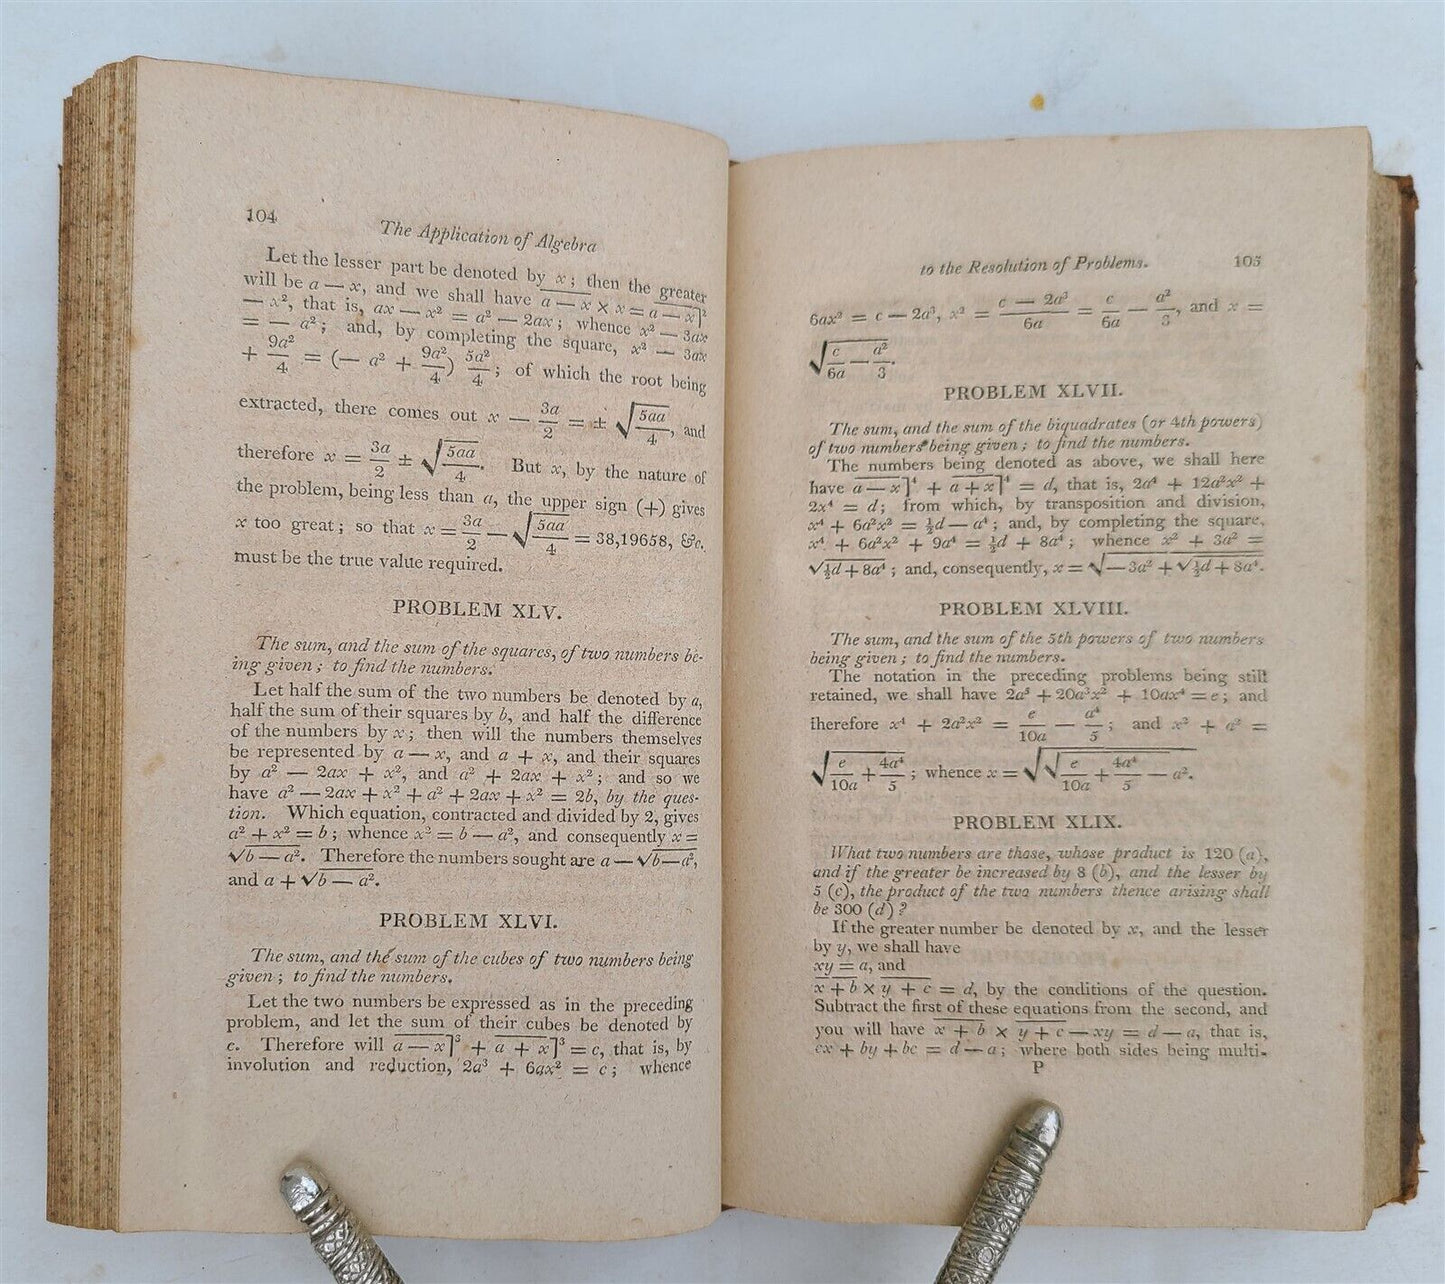 104
The Application of Algebra
Let the lesser part be denoted by x; then the greater
will be a — x, and we shall have a — x × x = a — x]²
— x², that is, ax — x² = a² — 2ax; whence x² — 3ax
= — a²; and, by completing the square, x² — 3ax
+ 9a²/4 = (— a² + 9a²/4) 5a²/4; of which the root being
extracted, there comes out x — 3a/2 = ± √5aa/4, and
therefore x = 3a/2 ± √5aa/4. But x, by the nature of
the problem, being less than a, the upper sign (+) gives
x too great; so that x = 3a/2 — √5aa/4 = 38,19658, &c.
must be the true value required.
PROBLEM XLV.
The sum, and the sum of the squares, of two numbers be-
ing given; to find the numbers.
Let half the sum of the two numbers be denoted by a,
half the sum of their squares by b, and half the difference
of the numbers by x; then will the numbers themselves
be represented by a — x, and a + x, and their squares
by a² — 2ax + x², and a² + 2ax + x²; and so we
have a² — 2ax + x² + a² + 2ax + x² = 2b, by the ques-
tion. Which equation, contracted and divided by 2, gives
a² + x² = b; whence x² = b — a², and consequently x =
√b — a². Therefore the numbers sought are a — √b—a²,
and a + √b — a².
PROBLEM XLVI.
The sum, and the sum of the cubes of two numbers being
given; to find the numbers.
Let the two numbers be expressed as in the preceding
problem, and let the sum of their cubes be denoted by
c. Therefore will a — x]³ + a + x]³ = c, that is, by
involution and reduction, 2a³ + 6ax² = c; whence
to the Resolution of Problems. 105
6ax² = c — 2a³, x² = c — 2a³/6a = c/6a — a²/3, and x =
√c/6a — a²/3.
PROBLEM XLVII.
The sum, and the sum of the biquadrates (or 4th powers)
of two numbers being given; to find the numbers.
The numbers being denoted as above, we shall here
have a — x]⁴ + a + x]⁴ = d, that is, 2a⁴ + 12a²x² +
2x⁴ = d; from which, by transposition and division,
x⁴ + 6a²x² = ½d — a⁴; and, by completing the square,
x⁴ + 6a²x² + 9a⁴ = ½d + 8a⁴; whence x² + 3a² =
√½d + 8a⁴; and, consequently, x = √—3a² + √½d + 8a⁴.
PROBLEM XLVIII.
The sum, and the sum of the 5th powers of two numbers
being given; to find the numbers.
The notation in the preceding problems being still
retained, we shall have 2a⁵ + 20a³x² + 10ax⁴ = e; and
therefore x⁴ + 2a²x² = e/10a — a⁴/5; and x² + a² =
√e/10a + 4a⁴/5; whence x = √√e/10a + 4a⁴/5 — a².
PROBLEM XLIX.
What two numbers are those, whose product is 120 (a),
and if the greater be increased by 8 (b), and the lesser by
5 (c), the product of the two numbers thence arising shall
be 300 (d)?
If the greater number be denoted by x, and the lesser
by y, we shall have
xy = a, and
x + b × y + c = d, by the conditions of the question.
Subtract the first of these equations from the second, and
you will have x + b × y + c — xy = d — a, that is,
cx + by + bc = d — a; where both sides being multi-
P